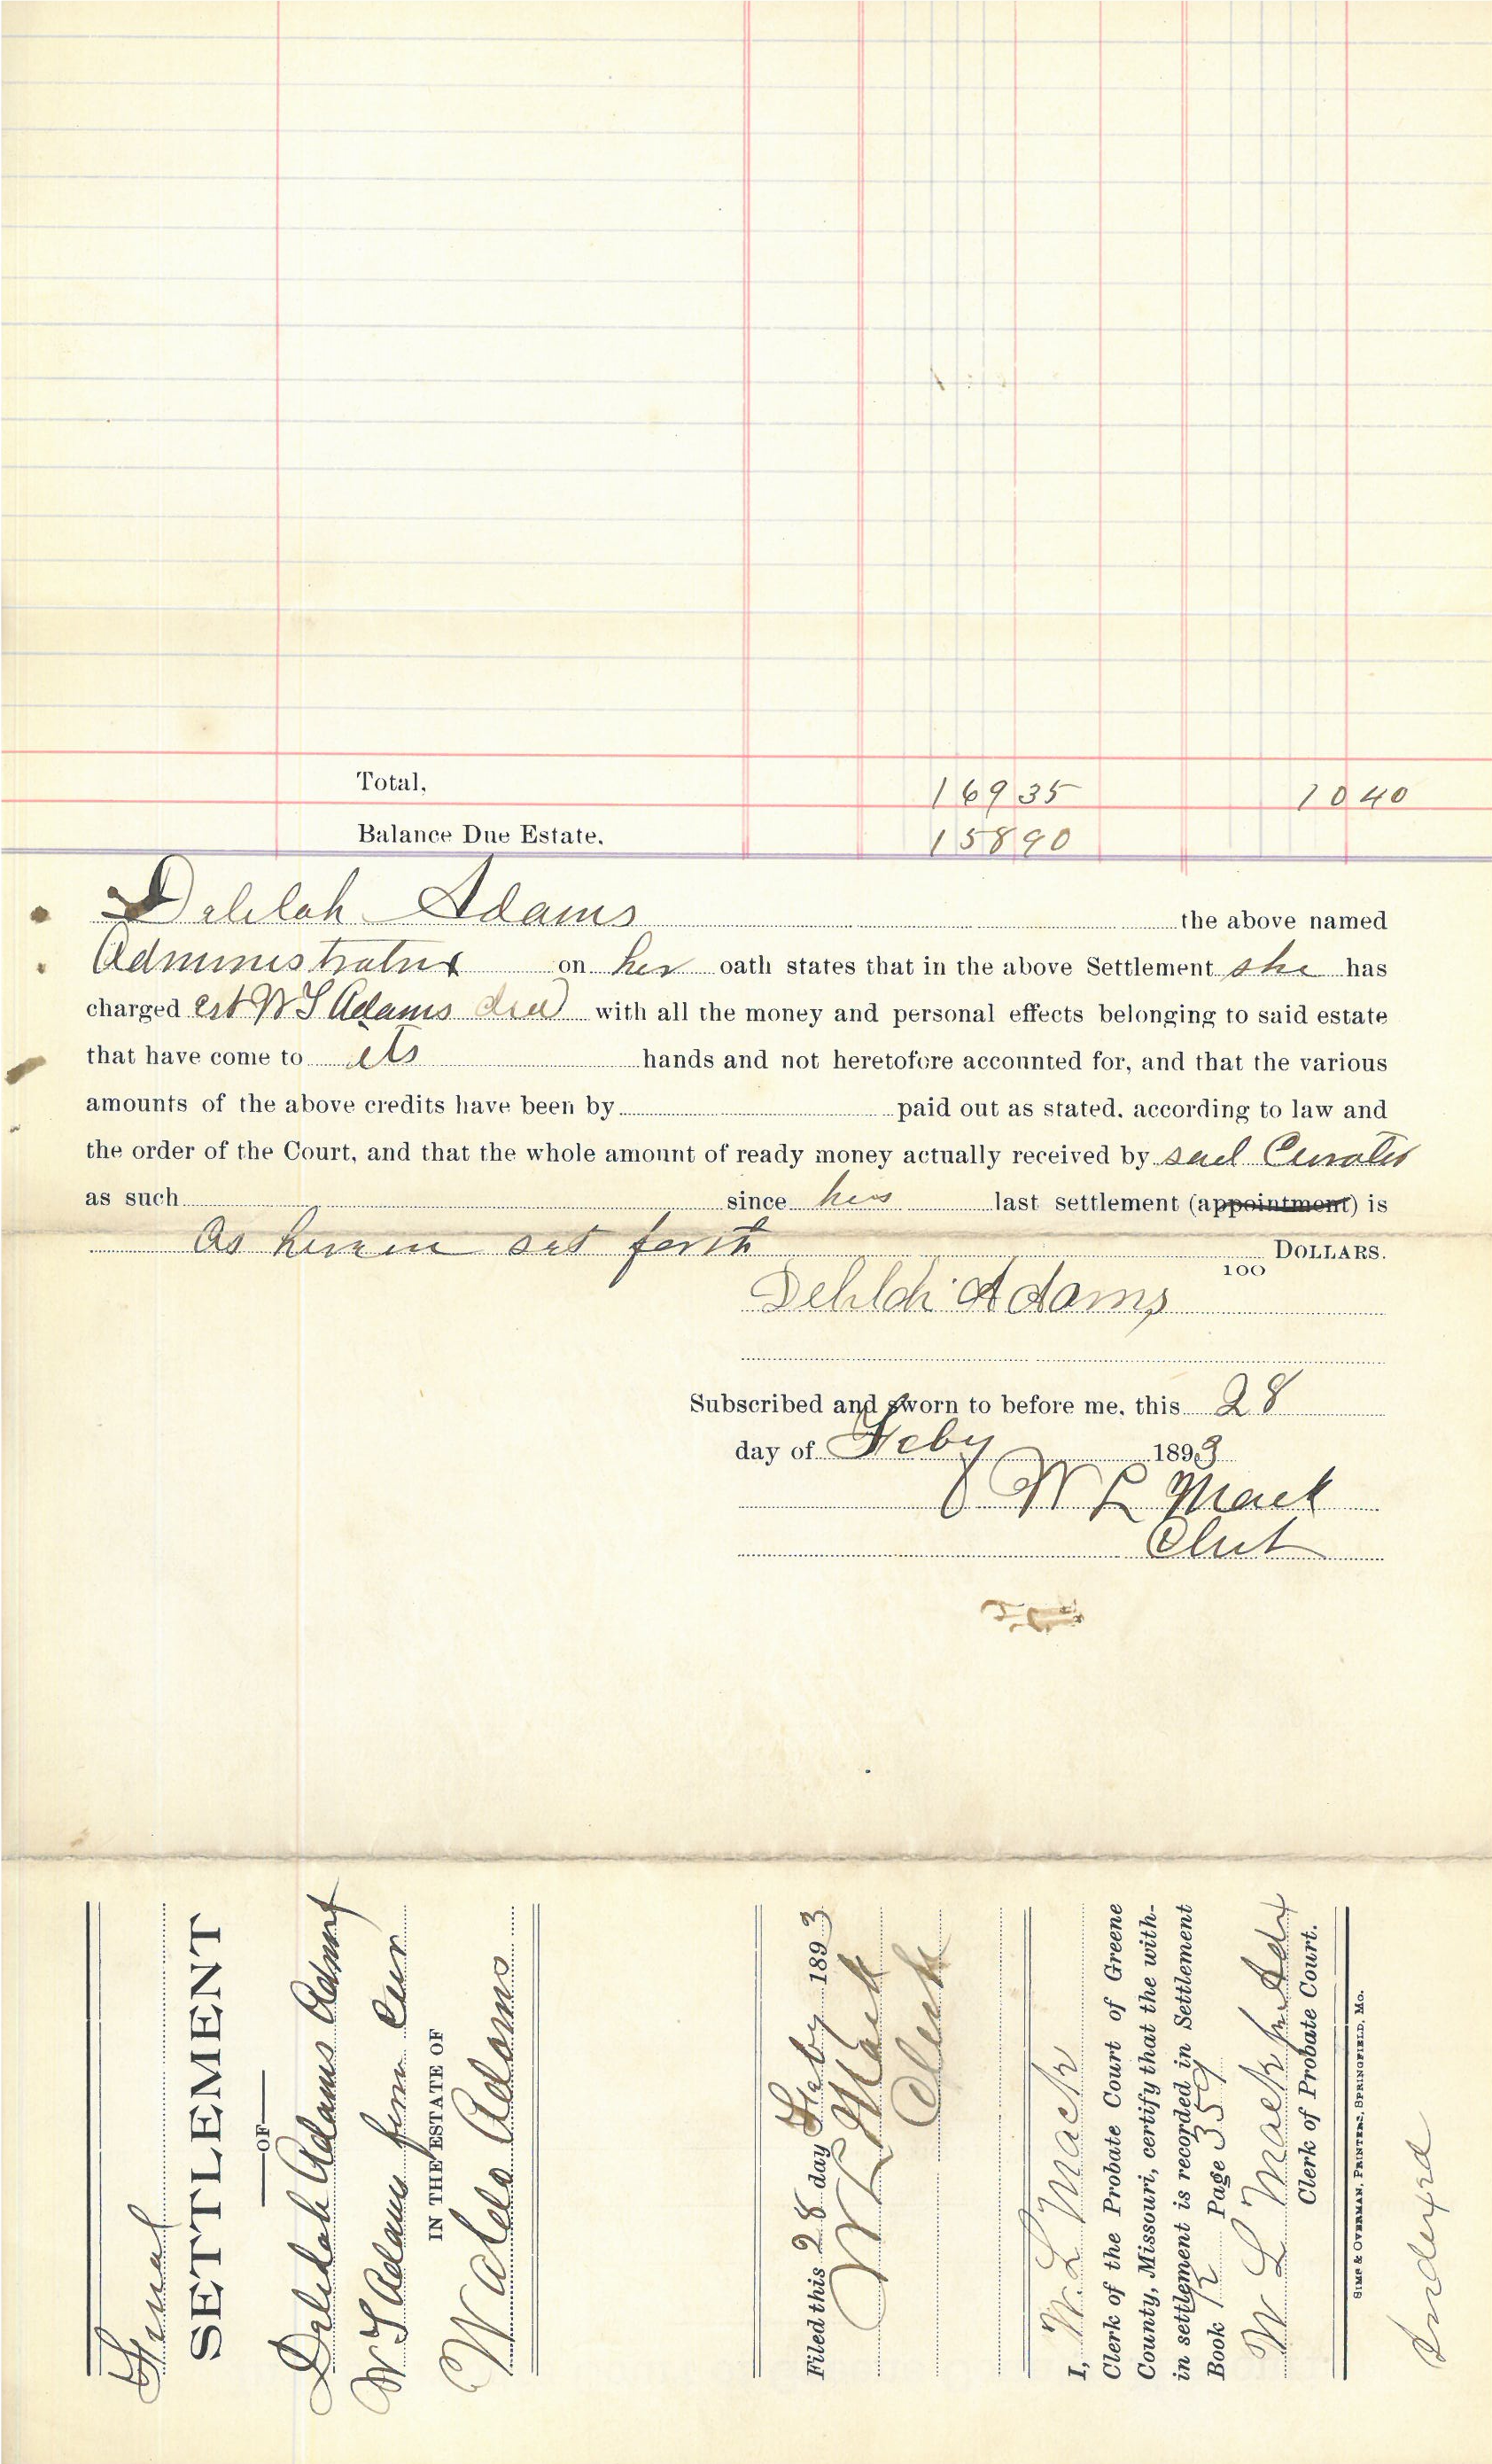 Total, 169 35 10 40
Balance Due Estate. 158 90
Delilah Adams the above named
Administratrix on her oath states that in the above Settlement she has
charged est W S Adams decd with all the money and personal effects belonging to said estate
that have come to its hands and not heretofore accounted for, and that the various
amounts of the above credits have been by paid out as stated, according to law and
the order of the Court, and that the whole amount of ready money actually received by said Curator
as such since his last settlement (appointment) is
As herein set forth DOLLARS.
100
Delilah Adams
Subscribed and sworn to before me, this 28
day of Feby 1893
W L Mack
Clerk
Final
SETTLEMENT
OF
Delilah Adams Admx
W S Adams Cur
IN THE ESTATE OF
Adams
Filed this 28 day Feby 1893
W L Mack
Clerk
I, W. L Mack
Clerk of the Probate Court of Greene
County, Missouri, certify that the with-
in settlement is recorded in Settlement
Book Page 359
W L Mack
Clerk of Probate Court.
SIMS & OVERMAN, PRINTERS, SPRINGFIELD, MO.
Indexed